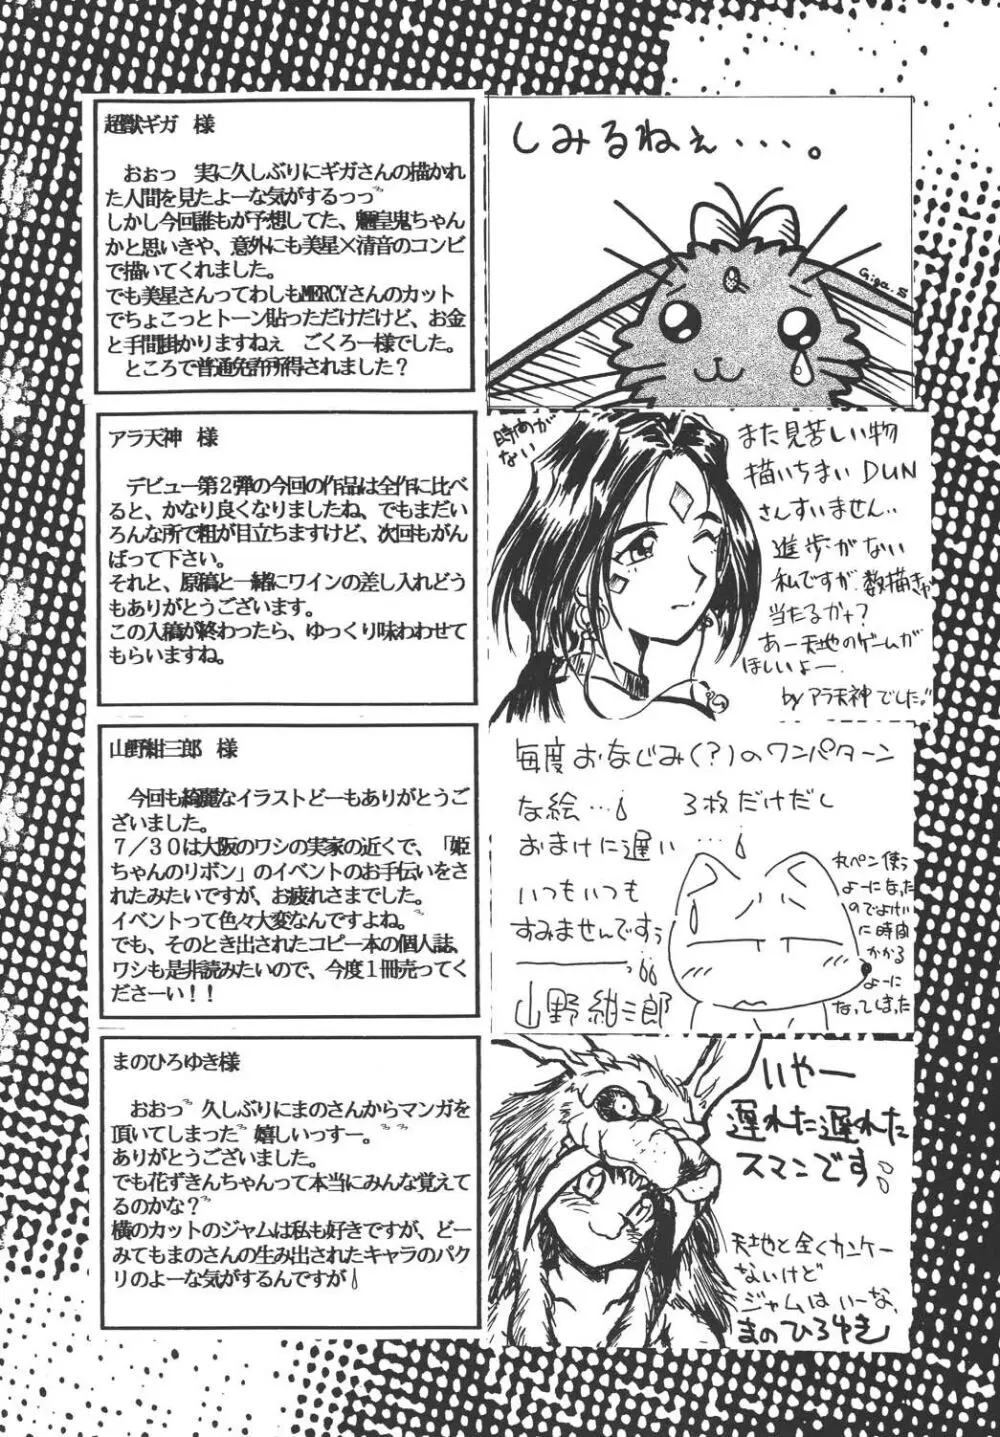 超獣ギガ　様
おぉっ　実に久しぶりにギガさんの描かれ
た人間を見たよーな気がするっっ゛
しかし今回誰もが予想してた、魎皇鬼ちゃん
かと思いきや、意外にも美星×清音のコンビ
で描いてくれました。
でも美星さんってわしもMERCYさんのカット
でちょこっとトーン貼っただけだけど、お金
と手間掛かりますねぇ　ごくろー様でした。
ところで普通免許所得されました？
しみるねぇ・・・。
Giga.S
アラ天神　様
デビュー第２弾の今回の作品は全作に比べ
ると、かなり良くなりましたね、でもまだい
ろんな所で粗が目立ちますけど、次回もがん
ばって下さい。
それと、原稿と一緒にワインの差し入れどう
もありがとうございます。
この入稿が終わったら、ゆっくり味わわせて
もらいますね。
時間が
ない
また見苦しい物
描いちまい DUN
さんすいません..
進歩がない
私ですが数描きゃ
当たるかな?
あー天地のゲームが
ほしいよー
by アラ天神でした!!
山野紺三郎　様
今回も綺麗なイラストどーもありがとうご
ざいました。
７／３０は大阪のワシの実家の近くで、「姫
ちゃんのリボン」のイベントのお手伝いをさ
れたみたいですが、お疲れさまでした。
イベントって色々大変なんですよね。゛
でも、そのとき出されたコピー本の個人誌、
ワシも是非読みたいので、今度１冊売ってく
ださーい！！
毎度おなじみ(?)のワンパターン
な絵...　３枚だけだし
おまけに遅い...
いつもいつも
すみませんですぅ
山野紺三郎
丸ペン使う
よーになった
のでよけい
に時間
かかる
よーに
なってしまった
まのひろゆき様
おおっ゛久しぶりにまのさんからマンガを
頂いてしまった゛嬉しいっすー。゛゛
ありがとうございました。
でも花ずきんちゃんって本当にみんな覚えて
るのかな？゛
横のカットのジャムは私も好きですが、どー
みてもまのさんの生み出されたキャラのパク
リのよーな気がするんですが
いやー
遅れた遅れた
スマンです
天地と全くカンケー
ないけど
ジャムはいーな、
まのひろゆき